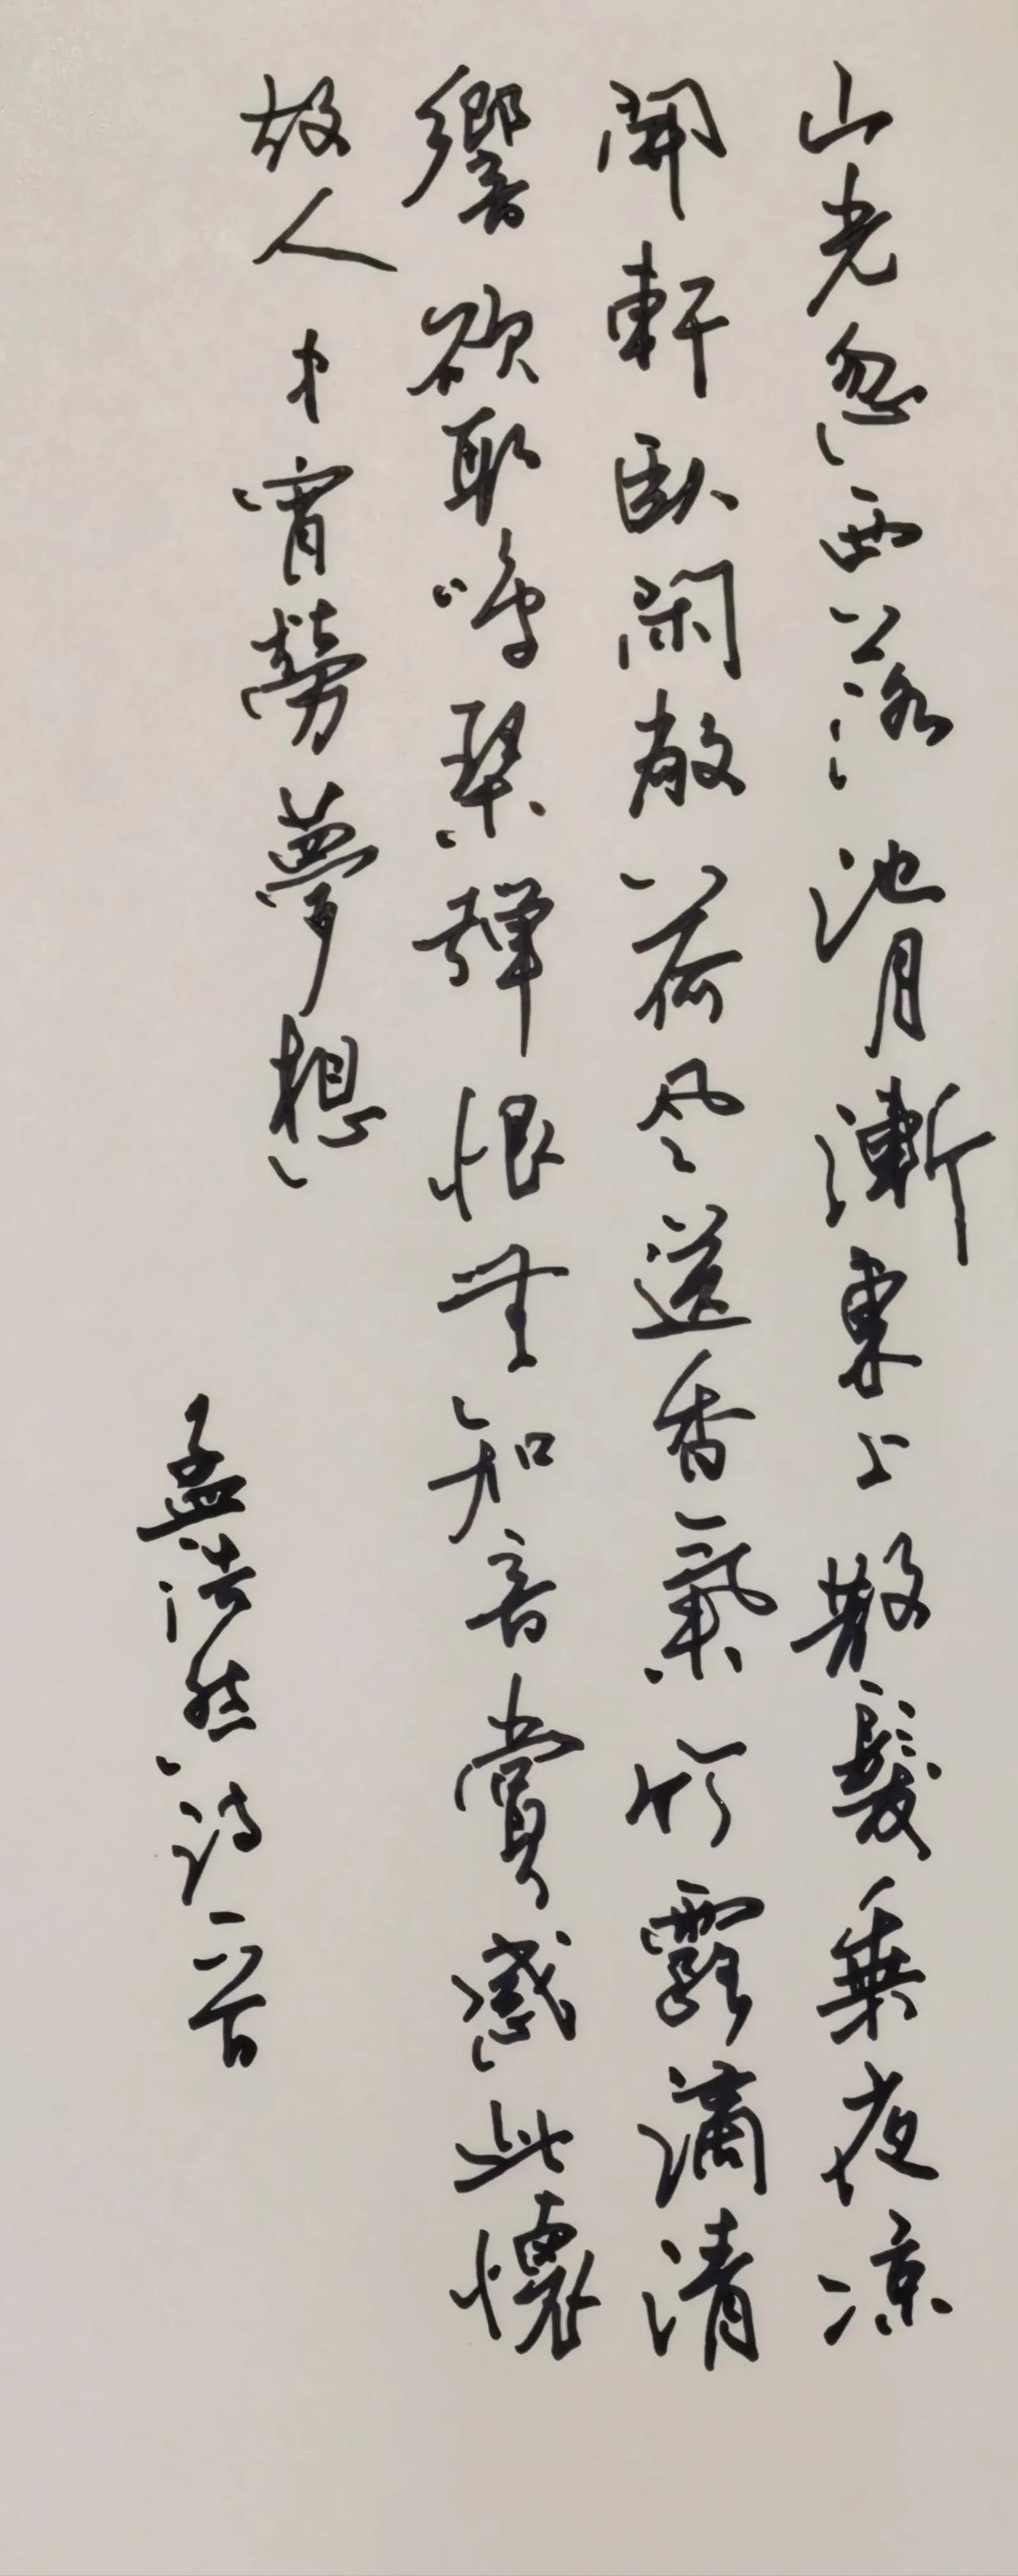 山光忽西落池月漸東上散髮乘夜凉
開軒臥閑敞荷風送香氣竹露滴清
響欲取鳴琴彈恨無知音賞感此懷
故人中宵勞夢想
孟浩然詩一首